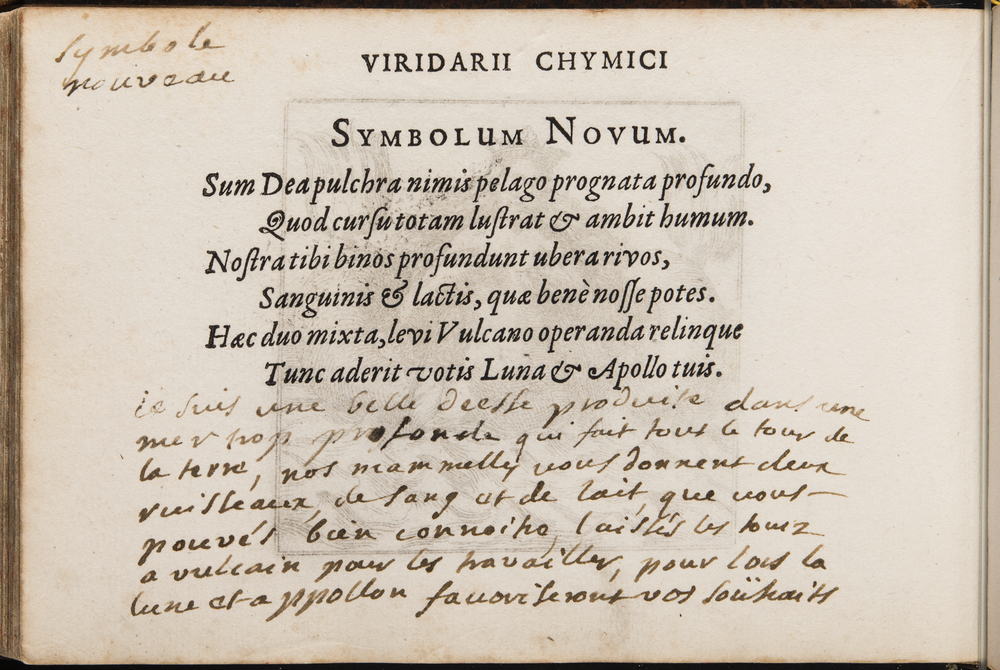 Symbole
nouveau
VIRIDARII CHYMICI
SYMBOLUM NOVUM.
Sum Dea pulchra nimis pelago prognata profundo,
Quod cursu totam lustrat & ambit humum.
Nostra tibi binos profundunt ubera rivos,
Sanguinis & lactis, quæ benè nosse potes.
Hæc duo mixta, levi Vulcano operanda relinque
Tunc aderit votis Luna & Apollo tuis.
ie suis une belle deesse produite dans une
mer trop profonde qui fait tout le tour de
la terre, nos mammelles vous donnent deux
ruisseaux, de sang et de lait, que vous
pouvés bien connoitre, laissés les
a vulcain pour les travailler, pour lors la
lune et appollon favoriseront vos souhaits